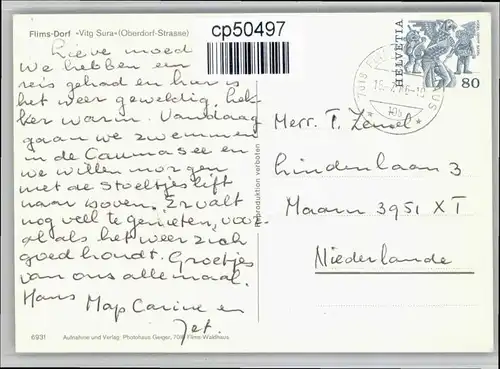 Flims-Dorf «Vitg Sura» (Oberdorf-Strasse)
cp50497
Lieve moed
We hebben een
reis gehad en hier is
het weer geweldig, lek-
ker warm. Vandaag
gaan we zwemmen
in de Caumasee en
we willen morgen
met de stoeltjeslift
naar boven. Er valt
nog veel te genieten, voor-
al als het weer zich
goed houdt. Groetjes
van ons allemaal.
Hans Map Carine en
Jet.
6931 Aufnahme und Verlag: Photohaus Geiger, Flims-Waldhaus
Reproduktion verboten
HELVETIA
80
Merr. T.
Lindenlaan 3
Maarn 3951 XT
Niederlande